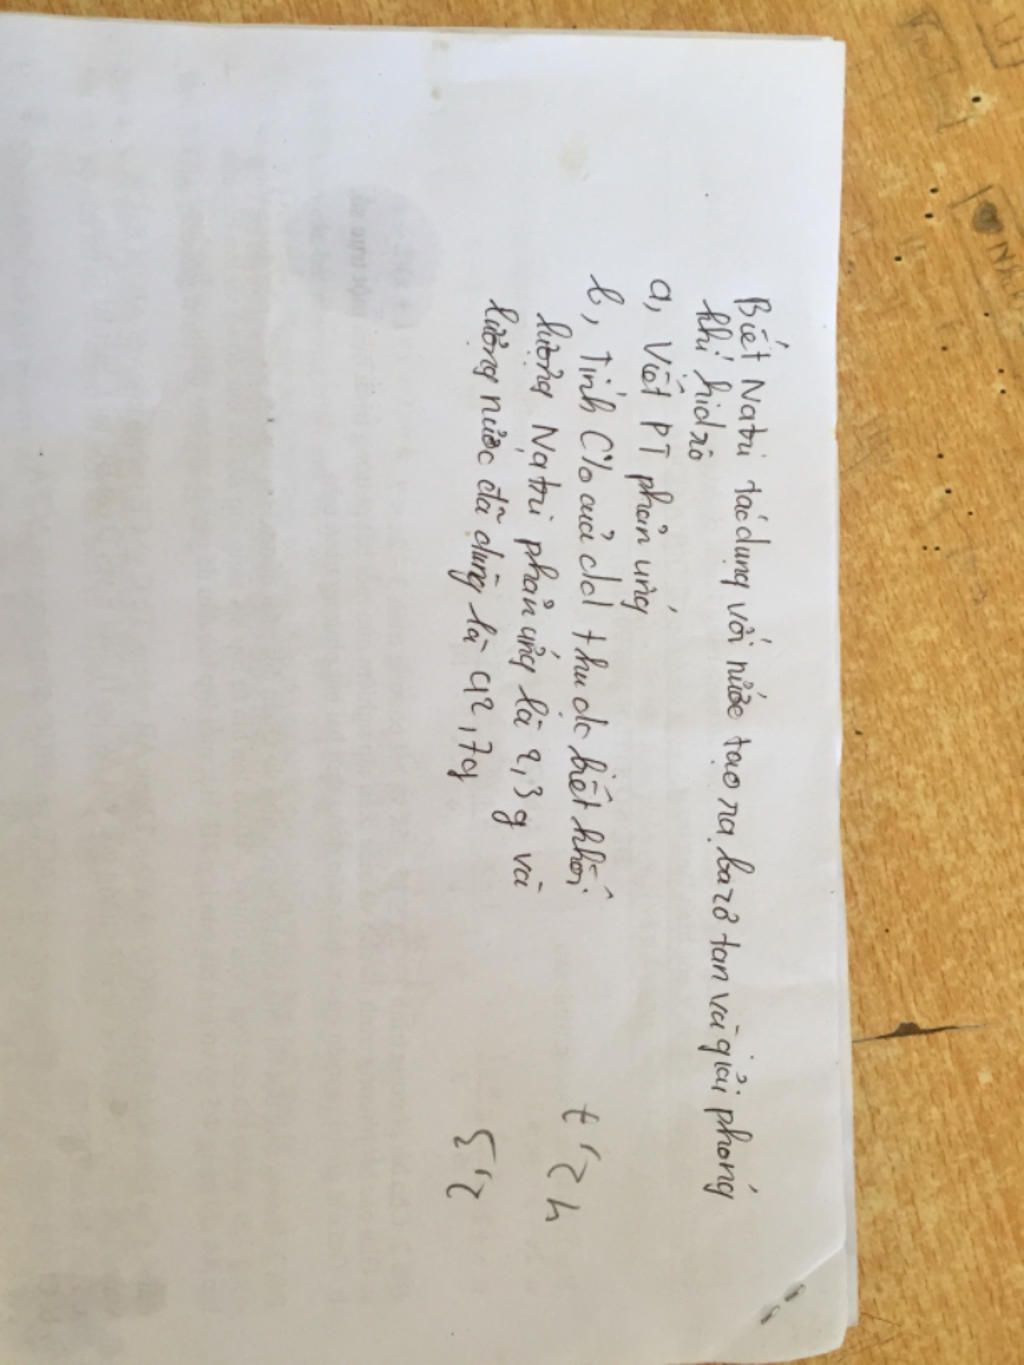 Biết Natri tác dụng với nước tạo ra bazơ tan và giải phóng
khí hidrô
a, Viết PT phản ứng
b, Tính C% của dd thu đc biết khối
lượng Natri phản ứng là 2,3g và
lượng nước đã dùng là 42,7g